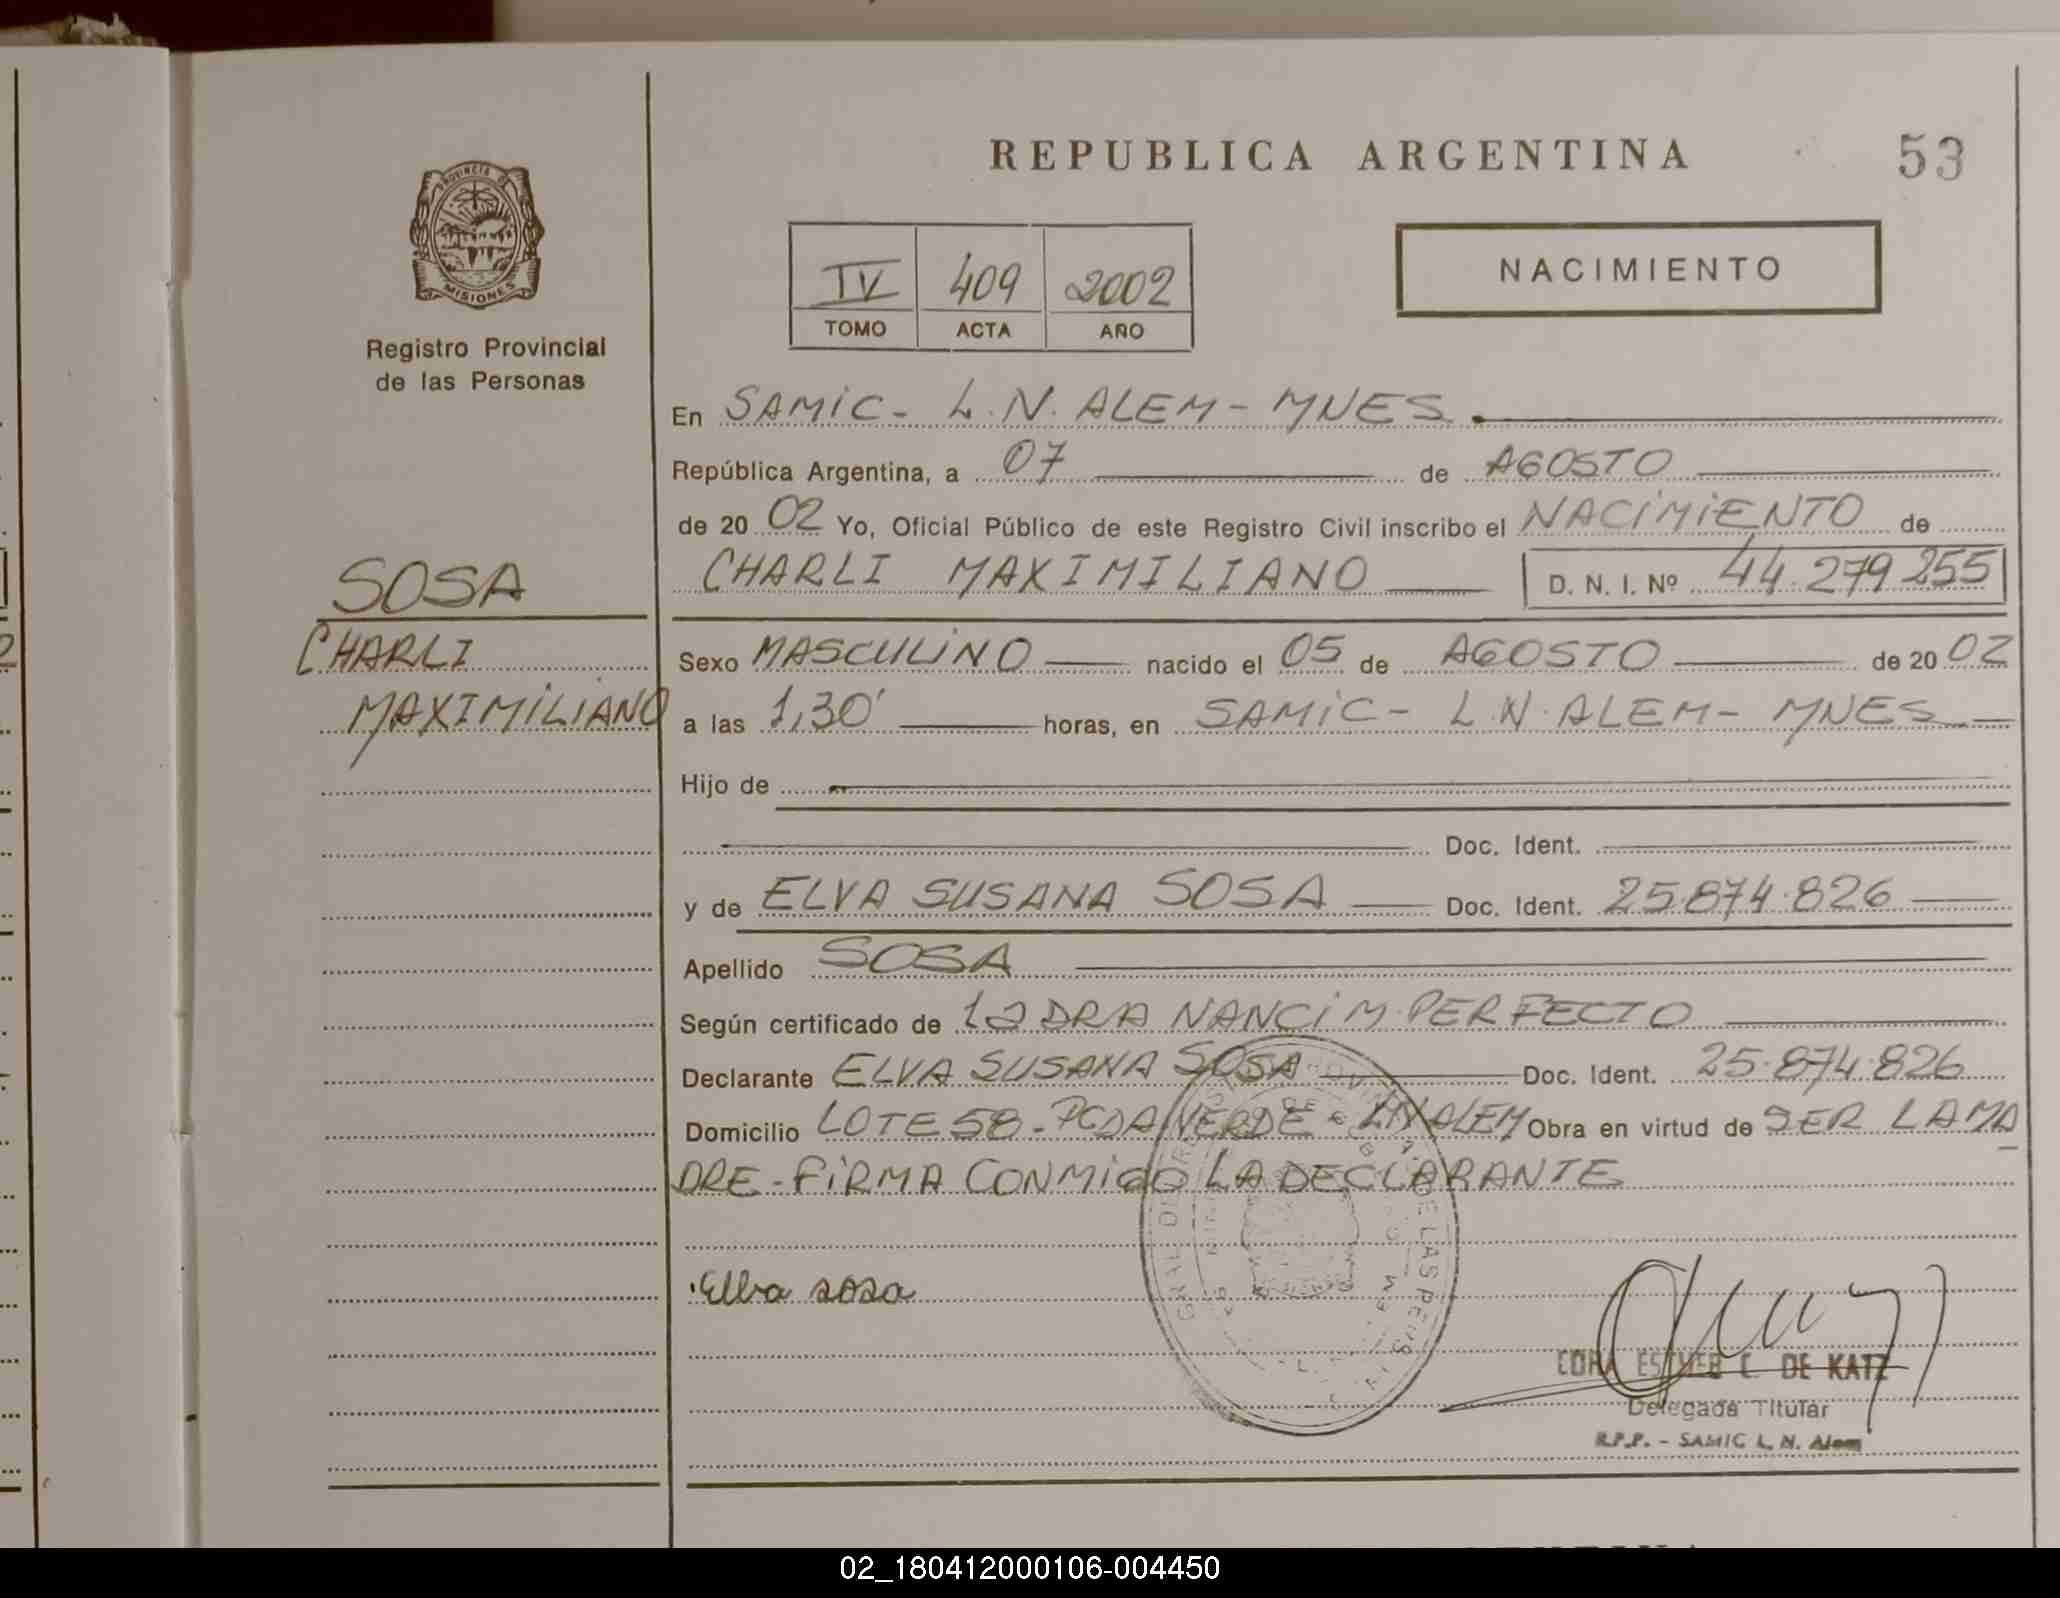 REPUBLICA ARGENTINA
53
PROVINCIA DE
MISIONES
Registro Provincial
de las Personas
IV 409 2002
TOMO ACTA AÑO
NACIMIENTO
En SAMIC - L.N. ALEM - MNES.
República Argentina, a 07 de AGOSTO
de 20 02 Yo, Oficial Público de este Registro Civil inscribo el NACIMIENTO de
CHARLI MAXIMILIANO D. N. I. Nº 44.279.255
SOSA
CHARLI
MAXIMILIANO
Sexo MASCULINO nacido el 05 de AGOSTO de 20 02
a las 1,30' horas, en SAMIC - L.N. ALEM - MNES
Hijo de
Doc. Ident.
y de ELVA SUSANA SOSA Doc. Ident. 25.874.826
Apellido SOSA
Según certificado de la DRA NANCI M. PERFECTO
Declarante ELVA SUSANA SOSA Doc. Ident. 25.874.826
Domicilio LOTE 58 - PCDA VERDE - LN ALEM Obra en virtud de SER LA MA
DRE - FIRMA CONMIGO LA DECLARANTE
Elba sosa
CORA ESTHER C. DE KATZ
Delegada Titular
R.P.P. - SAMIC L. N. Alem
02_180412000106-004450